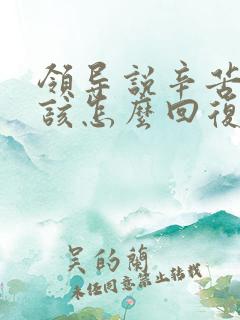 領导説辛苦
該怎麽回復
吴的蘭
未经同意禁止转载